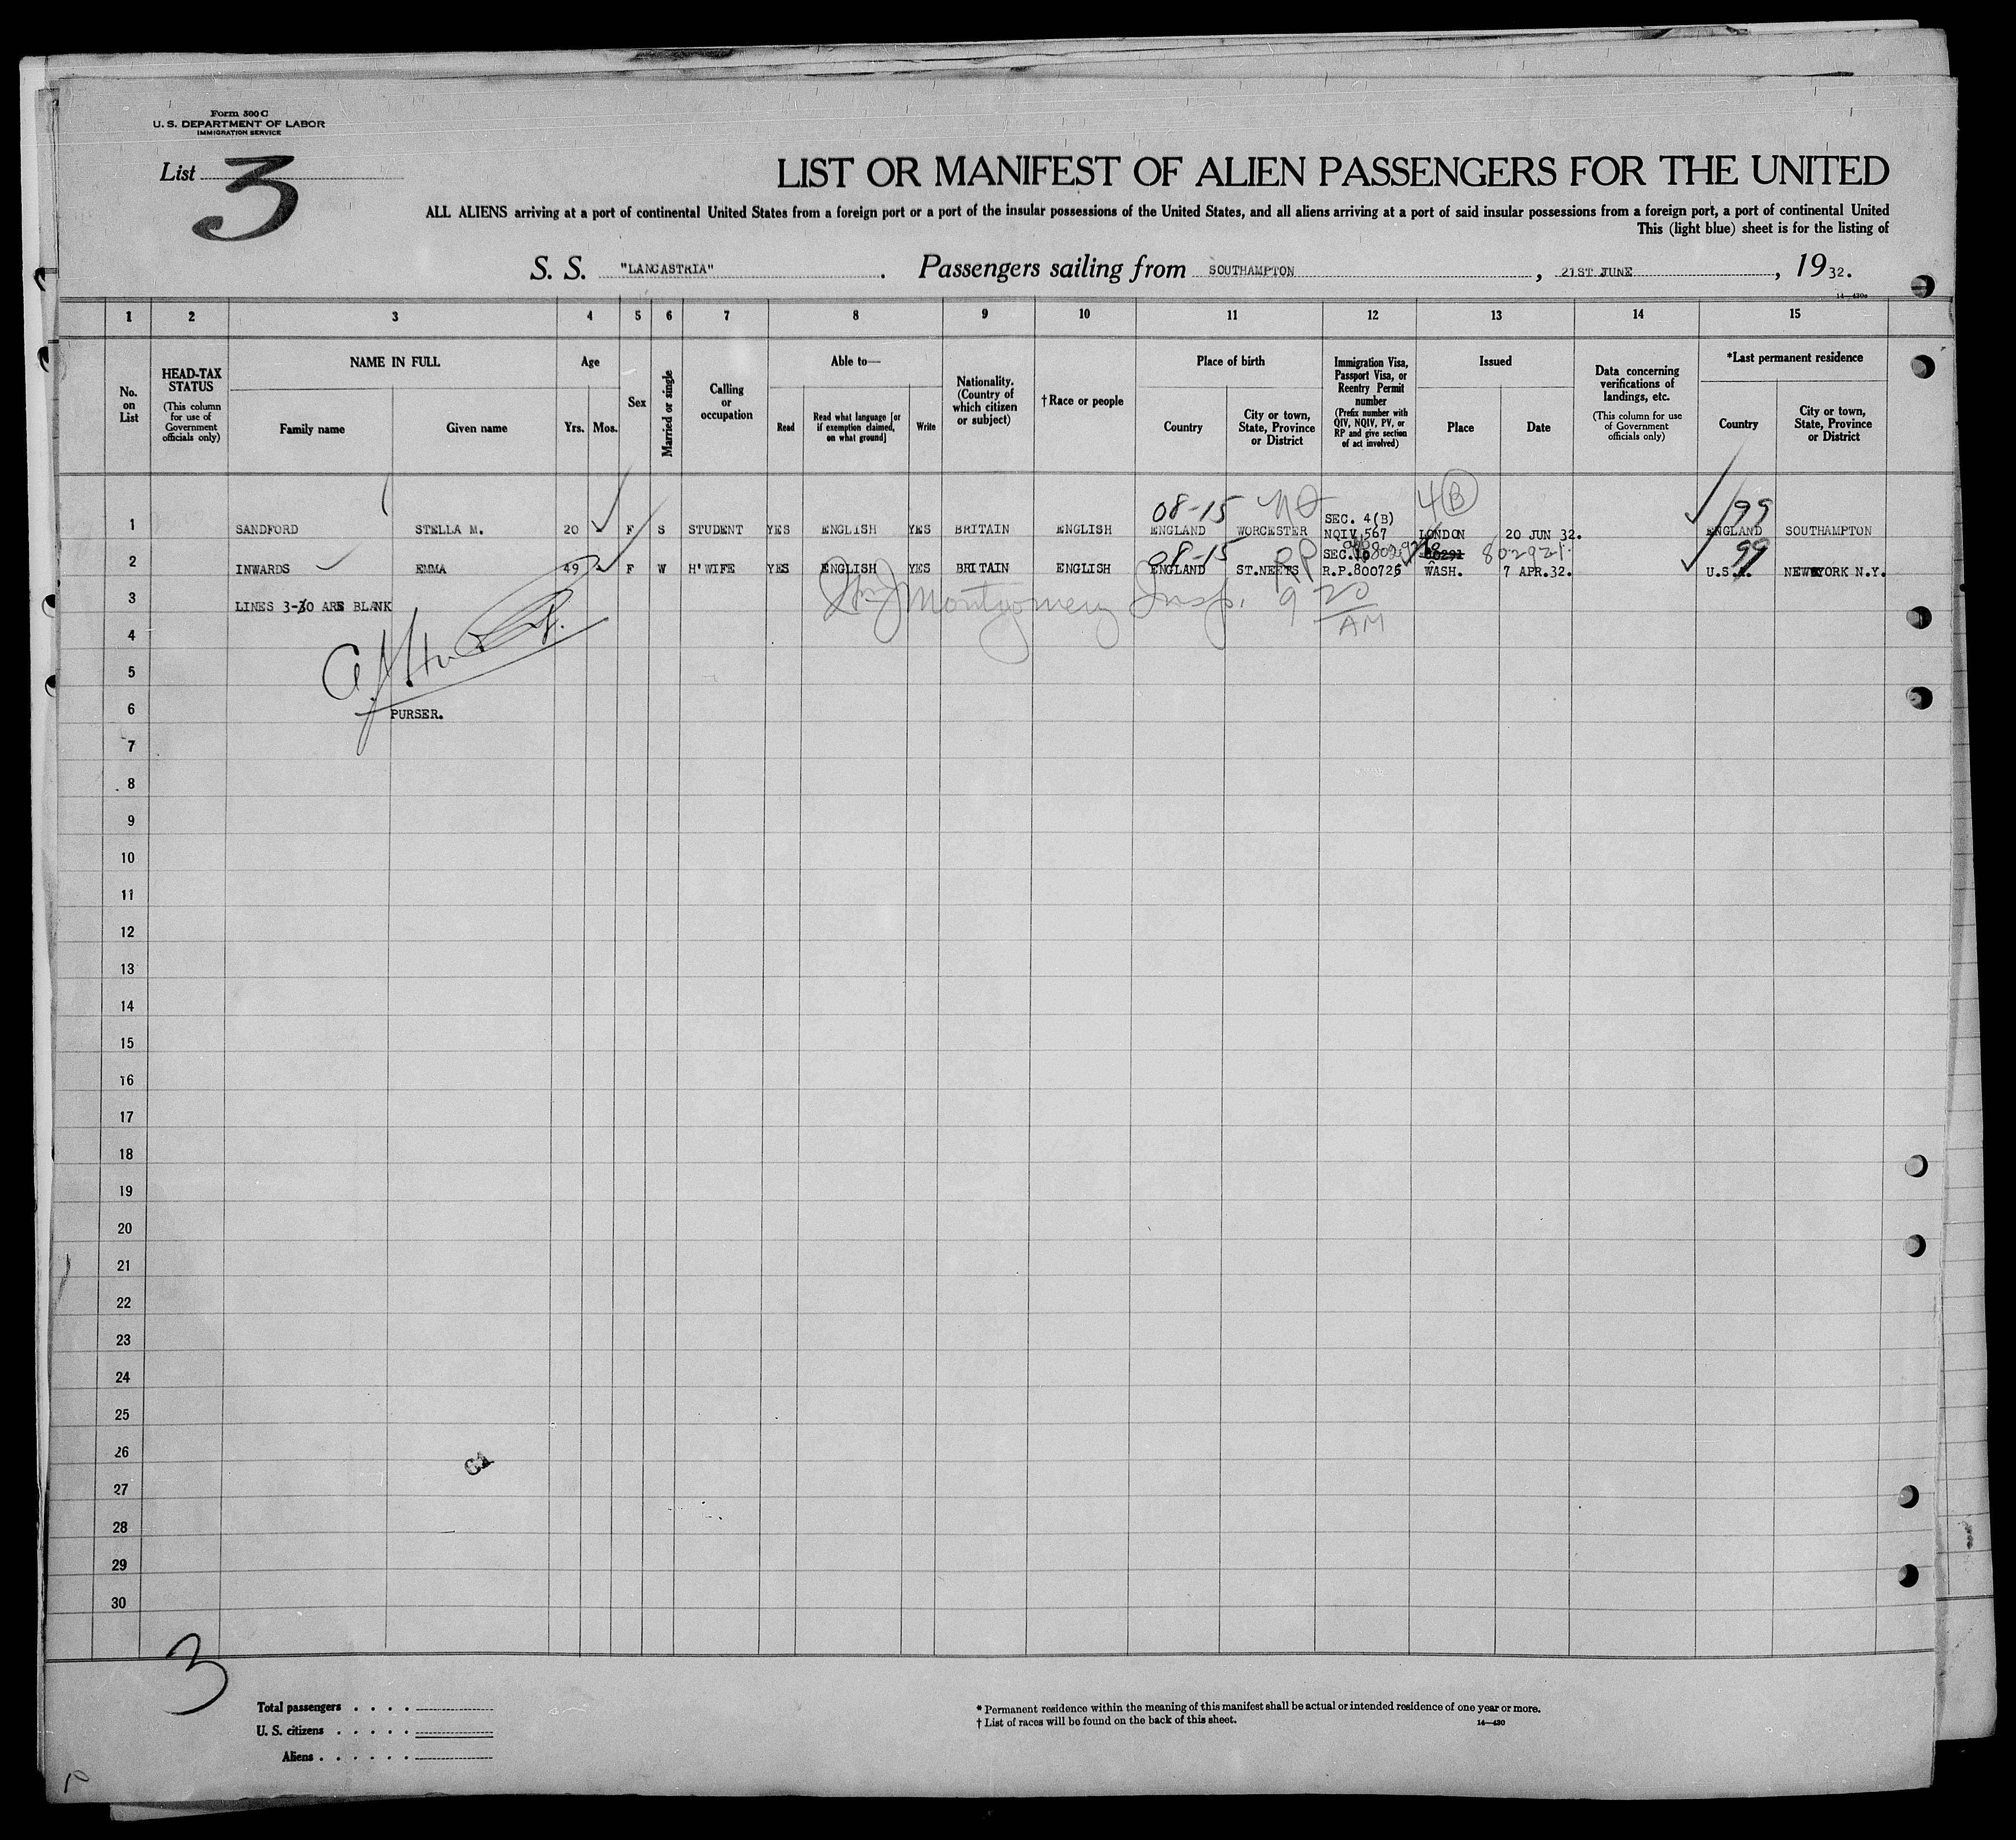 Form 500 C
U. S. DEPARTMENT OF LABOR
IMMIGRATION SERVICE
List 3
LIST OR MANIFEST OF ALIEN PASSENGERS FOR THE UNITED
ALL ALIENS arriving at a port of continental United States from a foreign port or a port of the insular possessions of the United States, and all aliens arriving at a port of said insular possessions from a foreign port, a port of continental United
This (light blue) sheet is for the listing of
S. S. "LANCASTRIA". Passengers sailing from SOUTHAMPTON, 21ST JUNE, 1932.
14—430a
1 2 3 4 5 6 7 8 9 10 11 12 13 14 15
No. on List
HEAD-TAX STATUS
(This column for use of Government officials only)
NAME IN FULL
Family name
Given name
Age
Yrs.
Mos.
Sex
Married or single
Calling or occupation
Able to—
Read
Read what language [or if exemption claimed, on what ground]
Write
Nationality. (Country of which citizen or subject)
†Race or people
Place of birth
Country
City or town, State, Province or District
Immigration Visa, Passport Visa, or Reentry Permit number
(Prefix number with QIV, NQIV, PV, or RP and give section of act involved)
Issued
Place
Date
Data concerning verifications of landings, etc.
(This column for use of Government officials only)
*Last permanent residence
Country
City or town, State, Province or District
08-15 4(B) 99
SEC. 4(B)
1 SANDFORD STELLA M. 20 - F S STUDENT YES ENGLISH YES BRITAIN ENGLISH ENGLAND WORCESTER NQIV.567 LONDON 20 JUN 32. ENGLAND SOUTHAMPTON
08-15 RP SEC.10 802921 99
2 INWARDS EMMA 49 - F W H'WIFE YES ENGLISH YES BRITAIN ENGLISH ENGLAND ST.NEETS R.P.800726 WASH. 7 APR.32. U.S.A. NEW YORK N.Y.
3 LINES 3-30 ARE BLANK Montgomery Insp. 9 20 AM
4
5
6 PURSER.
7
8
9
10
11
12
13
14
15
16
17
18
19
20
21
22
23
24
25
26
27
28
29
30
3
Total passengers . . . .
U. S. citizens . . . . .
Aliens . . . . . .
* Permanent residence within the meaning of this manifest shall be actual or intended residence of one year or more.
† List of races will be found on the back of this sheet. 14—430